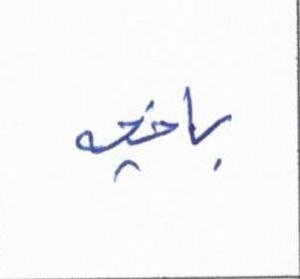 باغچه